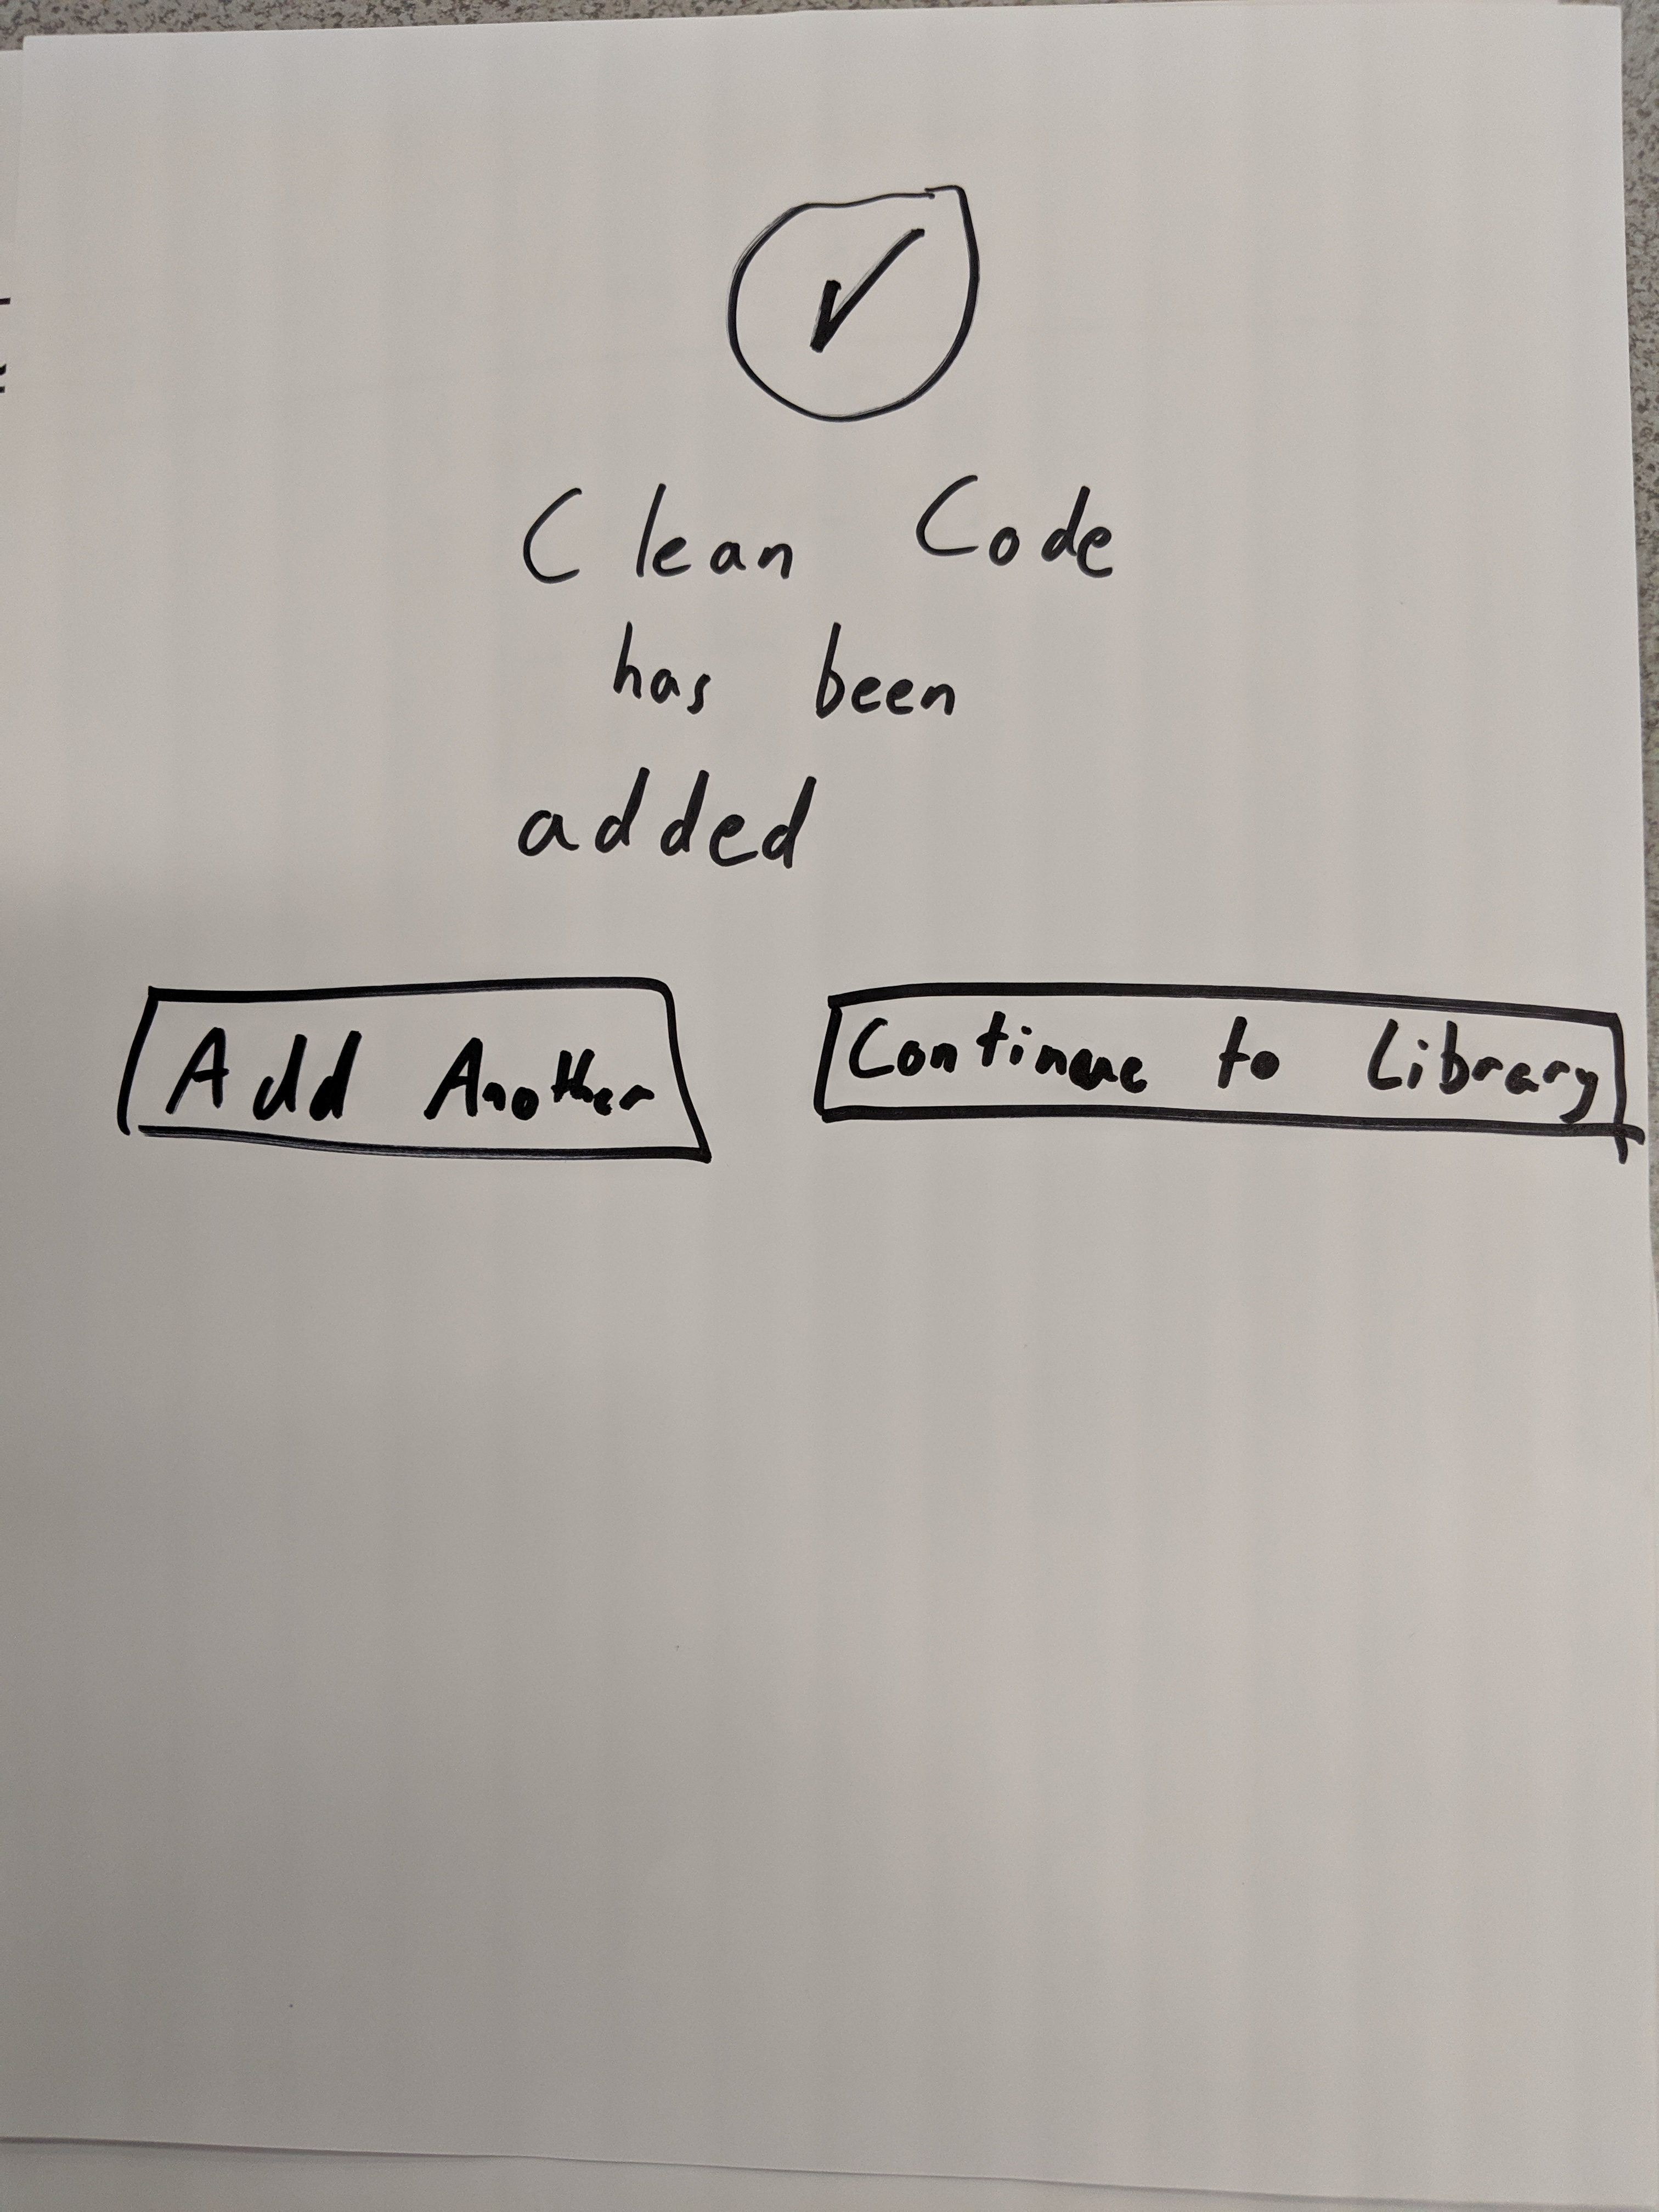 Clean Code
has been
added
Add Another
Continue to Library